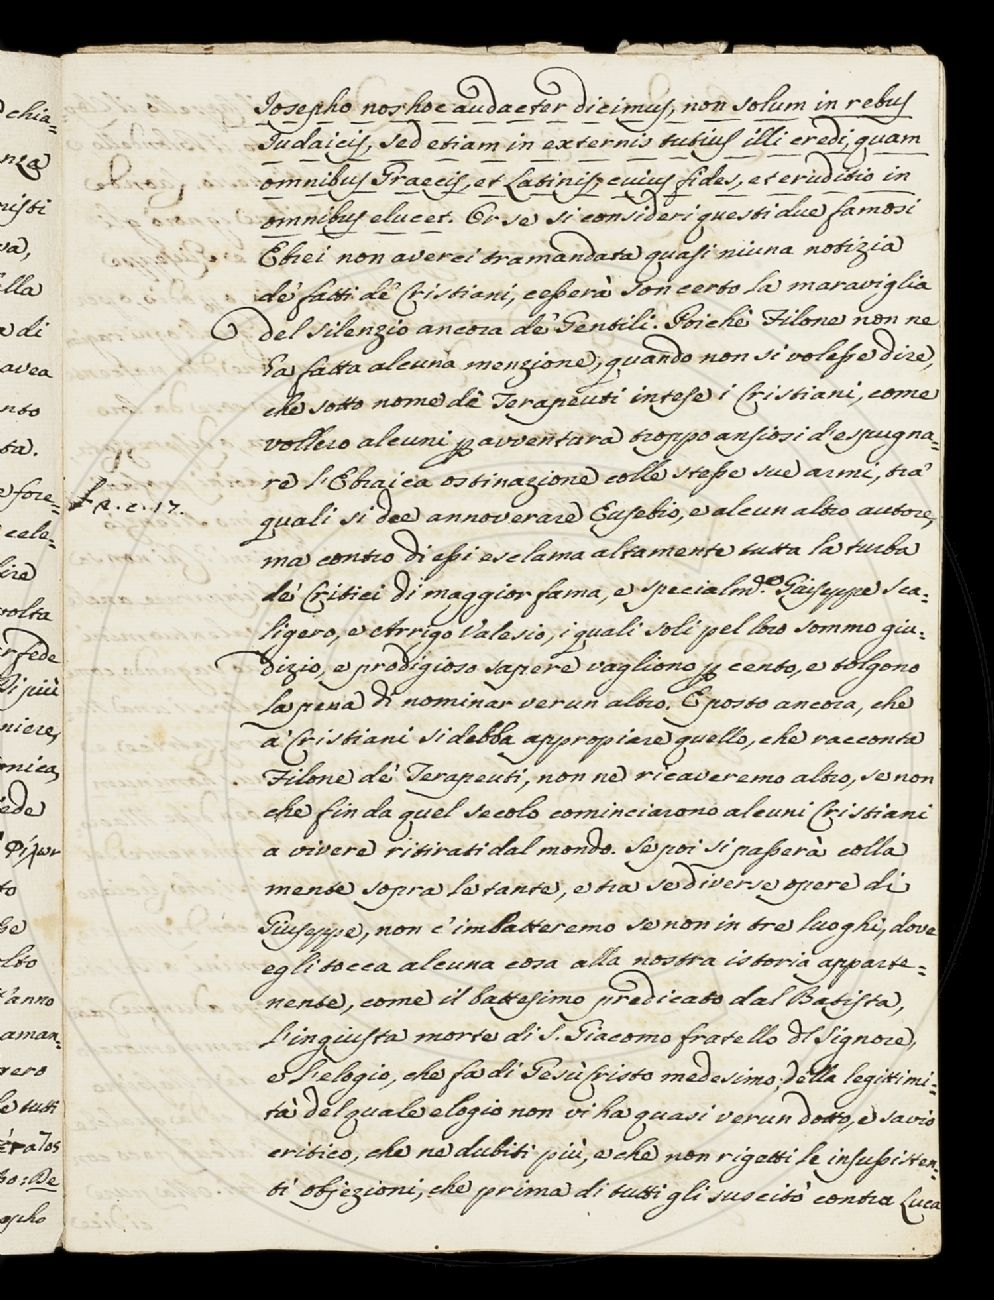 Josepho nos hoc audacter dicimus, non solum in rebus
Judaicis, sed etiam in externis tutius illi credi, quam
omnibus Graecis, et Latinis, cuius fides, et eruditio in
omnibus elucet. Or se si consideri questi due famosi
Ebrei non averci tramandata quasi niuna notizia
de' fatti de' Cristiani, cesserà Soncerto la maraviglia
del silenzio ancora de' Gentili. Poichè Filone non ne
ha fatta alcuna menzione; quando non si volesse dire,
che sotto nome de' Terapeuti intese i Cristiani, come
vollero alcuni p avventura troppo ansiosi d'espugna=
re l'Ebraica ostinazione colle stesse sue armi, tra'
f. 2. c. 17.
quali si dee annoverare Eusebio, e alcun altro autore,
ma contro di essi esclama altamente tutta la turba
de' Critici di maggior fama, e specialm.e Giuseppe Sca=
ligero, e Arrigo Valesio, i quali soli pel loro sommo giu=
dizio, e prodigioso sapere vagliono p cento, e tolgono
la pena di nominar verun altro. E posto ancora, che
a' Cristiani si debba appropiare quello, che racconta
Filone de' Terapeuti, non ne ricaveremo altro, se non
che fin da quel secolo cominciarono alcuni Cristiani
a vivere ritirati dal mondo. Se poi si passerà colla
mente sopra le tante, e tra se diverse opere di
Giuseppe, non c'imbatteremo se non in tre luoghi, dove
egli tocca alcuna cosa alla nostra istoria apparte=
nente, come il battesimo predicato dal Batista,
l'ingiusta morte di S. Giacomo fratello del Signore,
e l'elogio, che fa di Gesù Cristo medesimo, della legittimi=
tà del quale elogio non vi ha quasi verun dotto, e savio
critico, che ne dubiti più, e che non rigetti le insussisten=
ti objezioni, che prima di tutti gli suscitò contra Luca